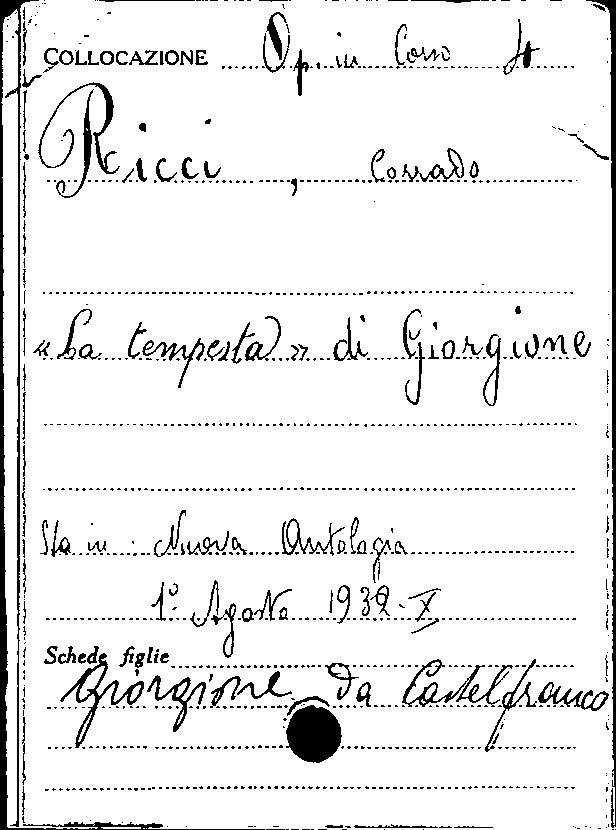 COLLOCAZIONE Op. in Corso
Ricci, Corrado
«La tempesta» di Giorgione
Sta in: Nuova Antologia
1º Agosto 1932-X
Schede figlie
Giorgione da Castelfranco